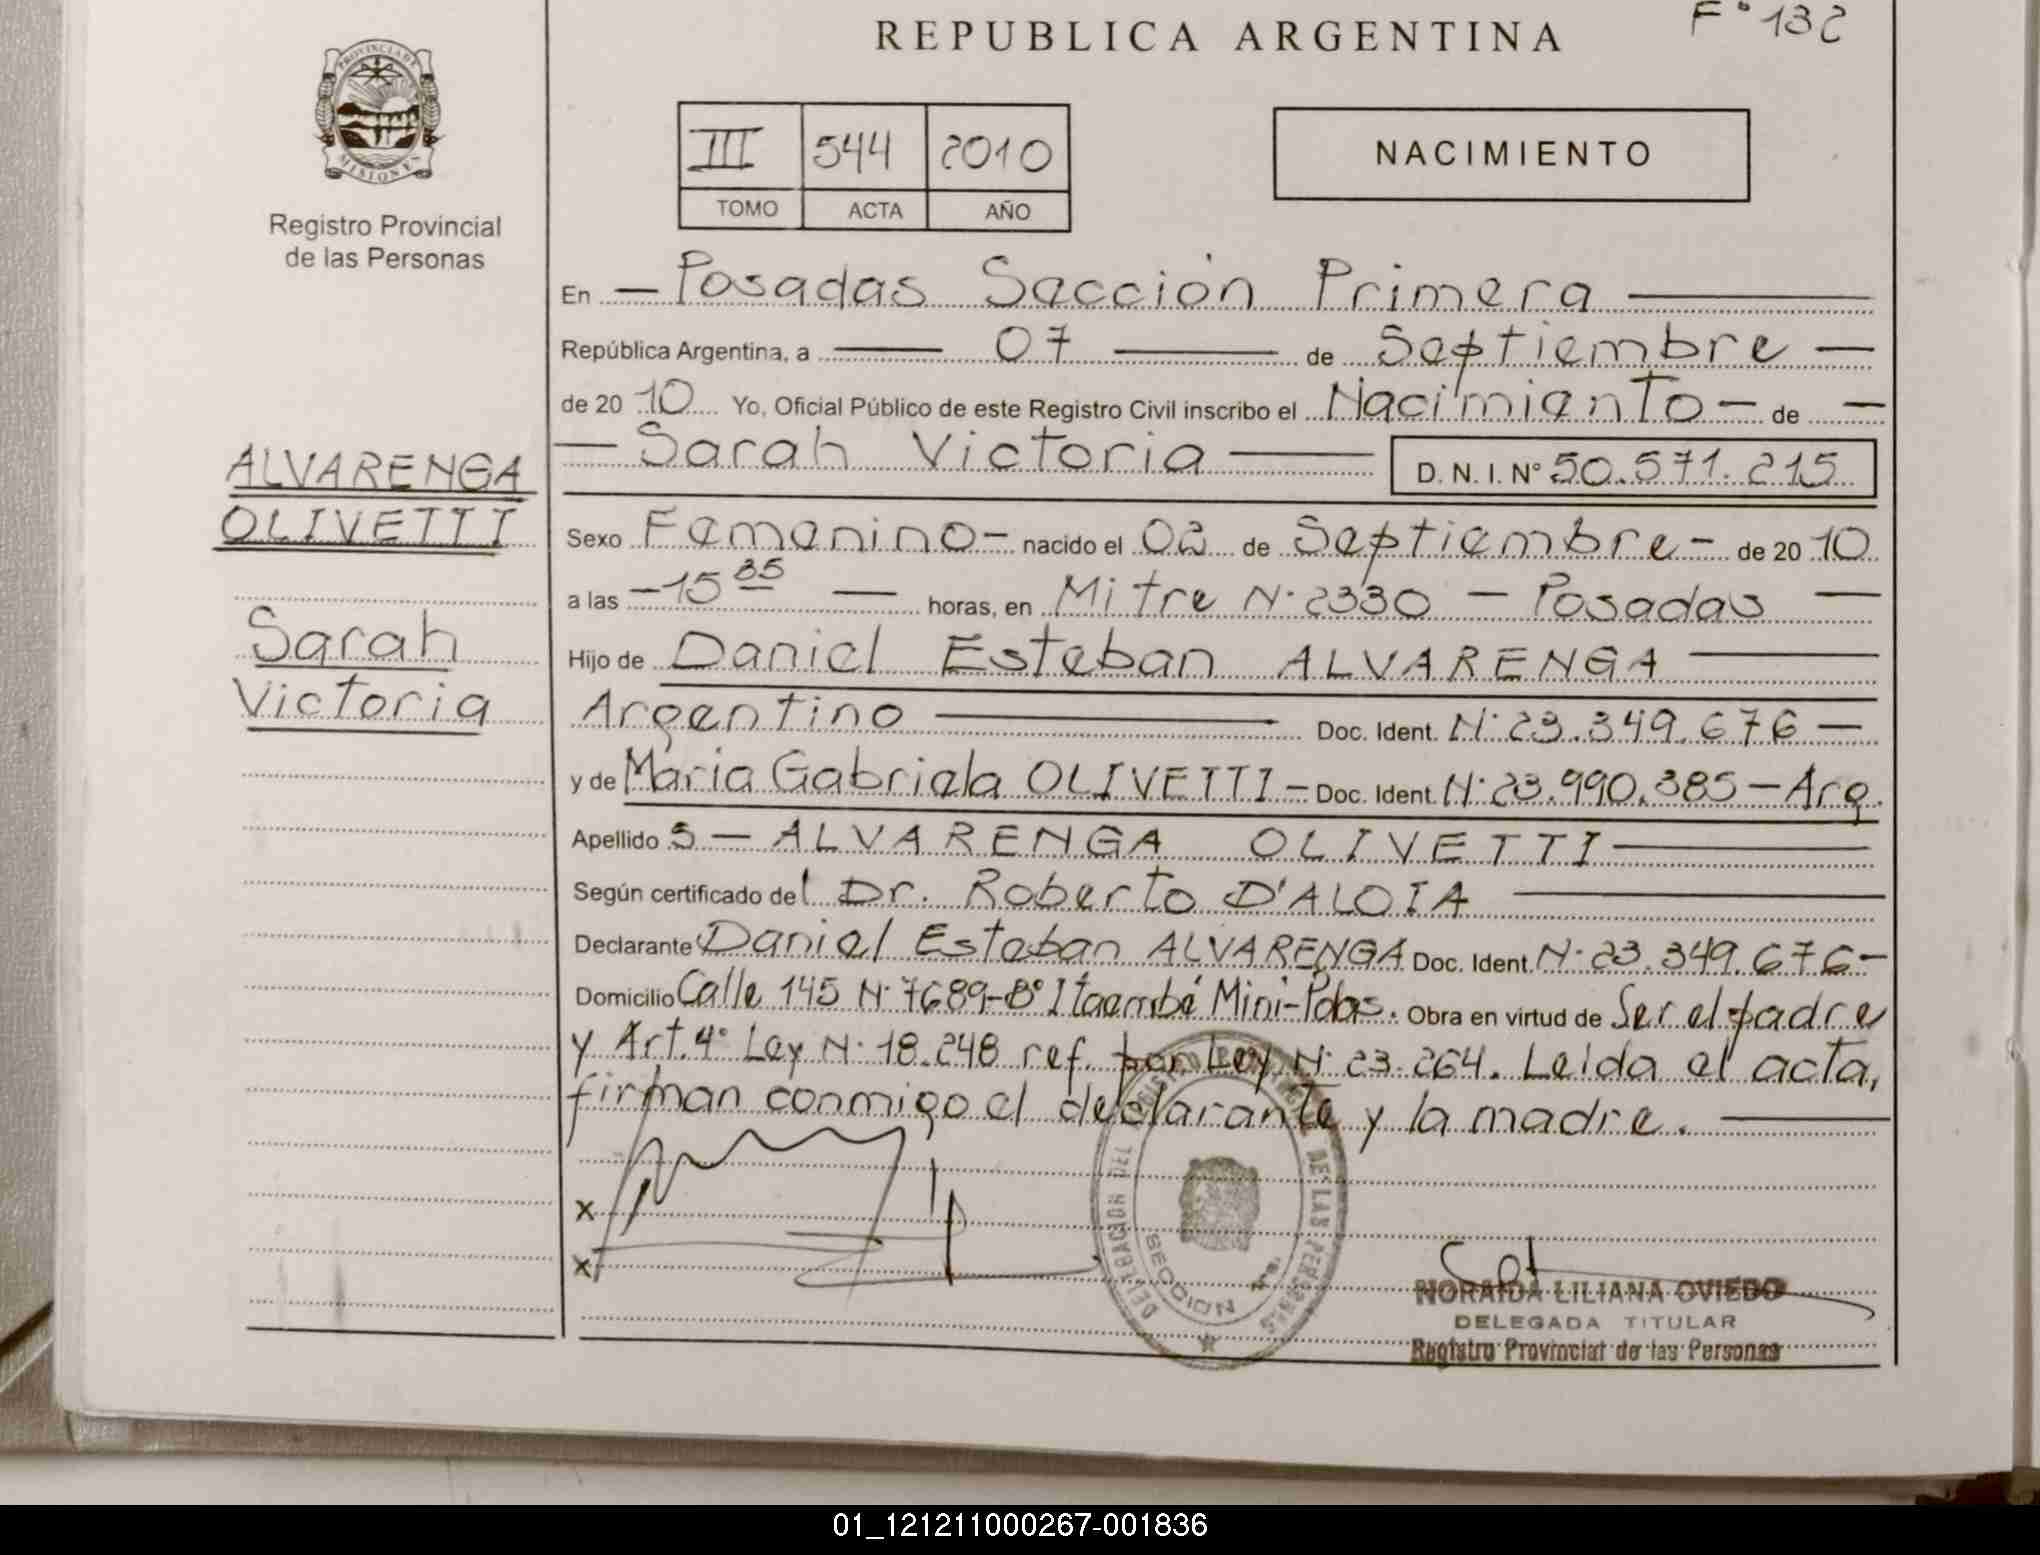 REPUBLICA ARGENTINA
F° 132
PROVINCIA DE
MISIONES
Registro Provincial
de las Personas
III 544 2010
TOMO ACTA AÑO
NACIMIENTO
En — Posadas Sección Primera —
República Argentina, a — 07 — de Septiembre —
de 20 10 Yo, Oficial Público de este Registro Civil inscribo el Nacimiento — de —
— Sarah Victoria — D. N. I. N° 50.571.215
ALVARENGA
OLIVETTI
Sarah
Victoria
Sexo Femenino — nacido el 02 de Septiembre — de 20 10
a las — 15 35 — horas, en Mitre N° 2330 — Posadas —
Hijo de Daniel Esteban ALVARENGA —
Argentino — Doc. Ident. N° 23.349.676 —
y de Maria Gabriela OLIVETTI — Doc. Ident. N° 23.990.385 — Arg.
Apellido s — ALVARENGA OLIVETTI —
Según certificado del Dr. Roberto D'ALOIA —
Declarante Daniel Esteban ALVARENGA Doc. Ident. N° 23.349.676 —
Domicilio Calle 145 N° 7689 - B° Itaembé Mini - Pdas. Obra en virtud de Ser el padre
y Art. 4° Ley N° 18.248 ref. por Ley N° 23.264. Leida el acta,
firman conmigo el declarante y la madre. —
X
X
DELEGACION DEL REGISTRO PROVINCIAL DE LAS PERSONAS
SECCION 1ra.
NORAIDA LILIANA OVIEDO
DELEGADA TITULAR
Registro Provincial de las Personas
01_121211000267-001836